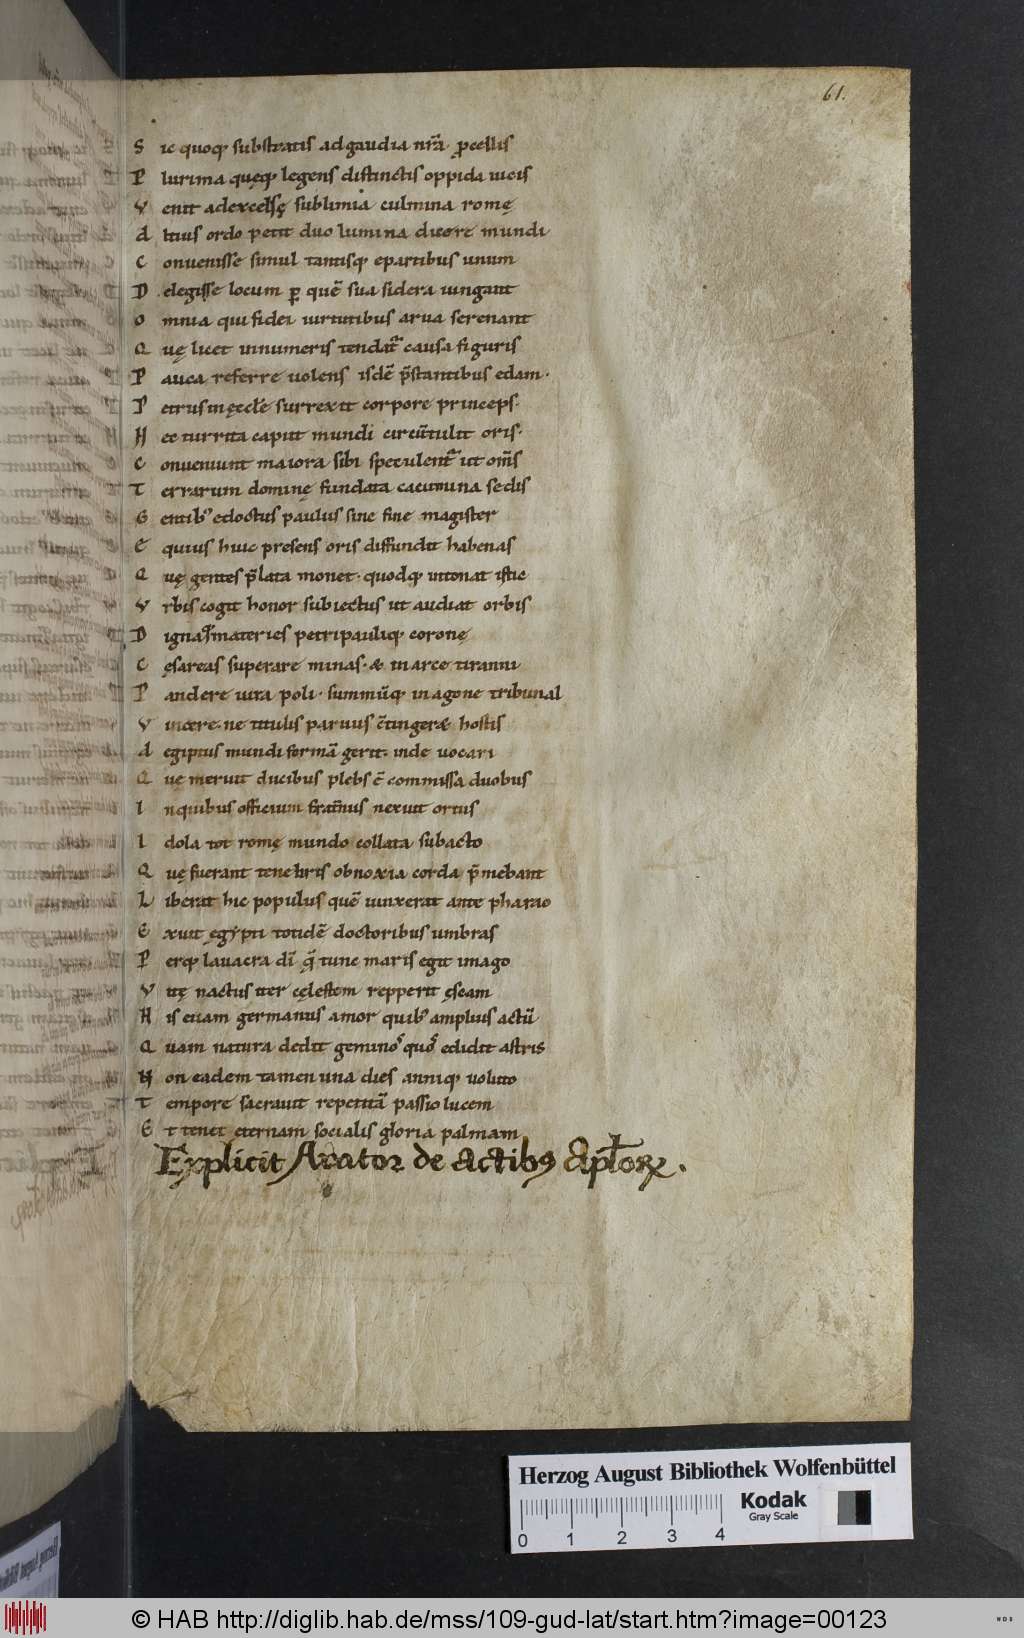 61.
S ic quoq; substratis ad gaudia nr̄a ꝓcellis
P lurima quęq; legens distinctis oppida uicis
V enit ad excelsę sublimia culmina romę
A ltius ordo petit duo lumina dicere mundi
C onuenisse simul tantisq; e partibus unum
D elegisse locum ꝑ quē sua sidera iungant
O mnia qui fidei uirtutibus arua serenant
Q uę licet innumeris tendat᷑ causa figuris
P auca referre uolens isdē p̄stantibus edam.
P etrus in ęccl̄e surrexit corpore princeps.
H ec turrita caput mundi circūtulit oris.
C onueniunt maiora sibi speculent᷑ ut om̄s
T errarum dominę fundata cacumina sedis
G entib; edoctus paulus sine fine magister
E quius huic presens oris diffundit habenas
Q uę gentes p̄lata monet. quodq; intonat istic
V rbis cogit honor subiectus ut audiat orbis
D igna materies petri pauliq; coronę
C ęsareas superare minas. & in arce tiranni
P andere iura poli. summūq; in agone tribunal
V incere. ne titulis paruus c̄tinger& hostis
A egiptus mundi formā gerit. inde uocari
Q ue meruit ducibus plebs ē commissa duobus
I n quibus officium frat̄nus nexuit ortus
I dola tot romę mundo collata subacto
Q uę fuerant tenebris obnoxia corda p̄mebant
L iberat hic populus quē uinxerat ante pharao
E xuit ęgypti totidē doctoribus umbras
P erq; lauacra dī q̄ tunc maris egit imago
V itę nactus iter cęlestem repperit ęscam
H is etiam germanus amor quib; amplius actū
Q uam natura dedit gemino᷒ quo᷒ edidit astris
N on eadem tamen una dies anniq; uoluto
T empore sacrauit repetitā passio lucem
E t tenet ęternam socialis gloria palmam
Explicit Arator de Actib; Apl̄oꝝ.
Herzog August Bibliothek Wolfenbüttel
Kodak
Gray Scale
0 1 2 3 4
© HAB http://diglib.hab.de/mss/109-gud-lat/start.htm?image=00123